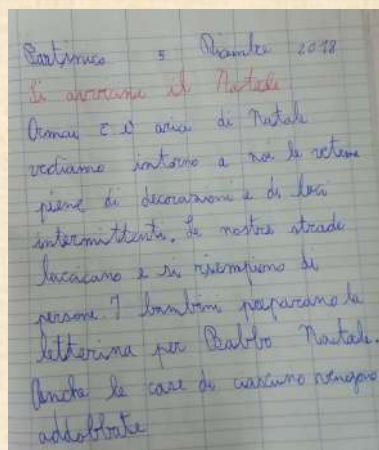 Partinico 5 Dicembre 2018
Si avvicina il Natale
Ormai c'è aria di Natale
vediamo intorno a noi le vetrine
piene di decorazioni e di luci
intermittenti. Le nostre strade
e si riempiono di
persone. I bambini preparano la
letterina per Babbo Natale.
Anche le case di ciascuno vengono
addobbate